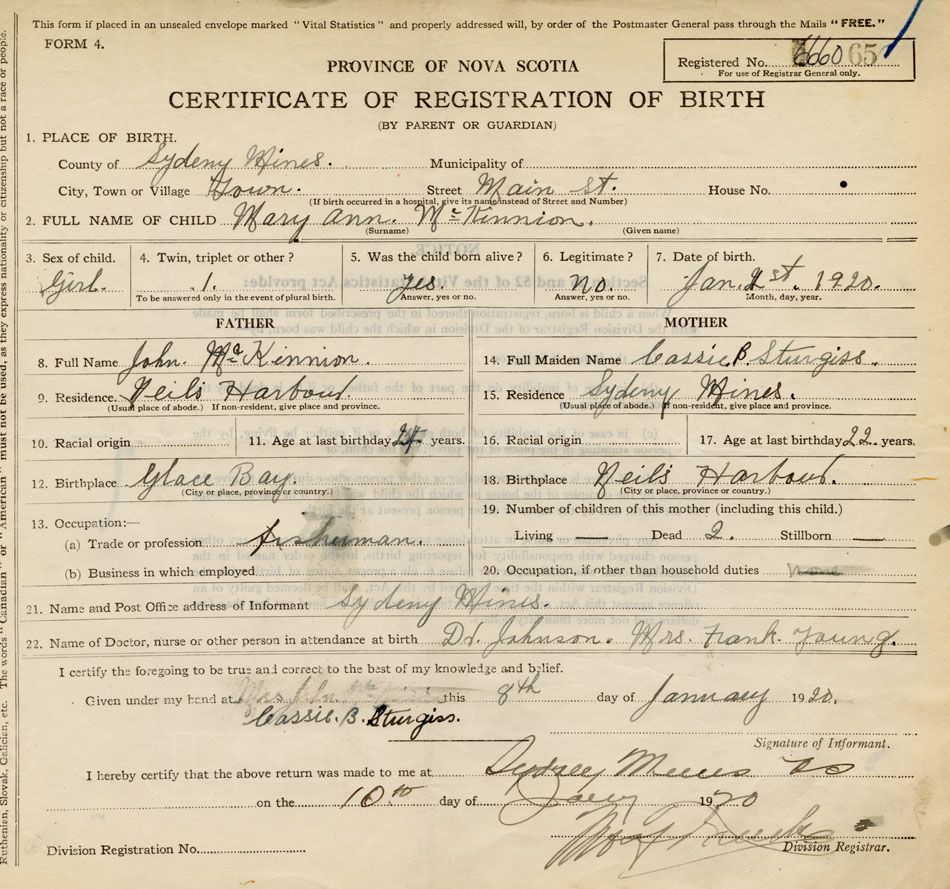 This form if placed in an unsealed envelope marked "Vital Statistics" and properly addressed will, by order of the Postmaster General pass through the Mails "FREE."
FORM 4.
Registered No. 6660 65
For use of Registrar General only.
PROVINCE OF NOVA SCOTIA
CERTIFICATE OF REGISTRATION OF BIRTH
(BY PARENT OR GUARDIAN)
1. PLACE OF BIRTH.
County of Sydeny Mines. Municipality of
City, Town or Village Town. Street Main St. House No.
(If birth occurred in a hospital, give its name instead of Street and Number)
2. FULL NAME OF CHILD Mary Ann. McKinnion.
(Surname) (Given name)
3. Sex of child. 4. Twin, triplet or other? 5. Was the child born alive? 6. Legitimate? 7. Date of birth.
Girl. 1. Yes. No. Jan. 1st. 1920.
To be answered only in the event of plural birth. Answer, yes or no. Answer, yes or no. Month, day, year.
FATHER MOTHER
8. Full Name John. McKinnion. 14. Full Maiden Name Cassie B. Sturgiss.
9. Residence. Neils Harbour. 15. Residence Sydeny Mines.
(Usual place of abode.) If non-resident, give place and province. (Usual place of abode.) If non-resident, give place and province.
10. Racial origin 11. Age at last birthday 24 years. 16. Racial origin 17. Age at last birthday 22. years.
12. Birthplace Glace Bay. 18. Birthplace Neils Harbour.
(City or place, province or country.) (City or place, province or country.)
13. Occupation:— 19. Number of children of this mother (including this child.)
(a) Trade or profession fisherman. Living — Dead 2. Stillborn —
(b) Business in which employed 20. Occupation, if other than household duties none
21. Name and Post Office address of Informant Sydeny Mines.
22. Name of Doctor, nurse or other person in attendance at birth Dr. Johnson. Mrs. Frank Young.
I certify the foregoing to be true and correct to the best of my knowledge and belief.
Given under my hand at this 8th day of January 1920.
Cassie. B. Sturgiss.
Signature of Informant.
I hereby certify that the above return was made to me at Sydney Mines
on the 10th day of Jany 1920
Division Registration No. Division Registrar.
Ruthenian, Slovak, Galician, etc. The words "Canadian" or "American" must not be used, as they express nationality or citizenship but not a race or people.